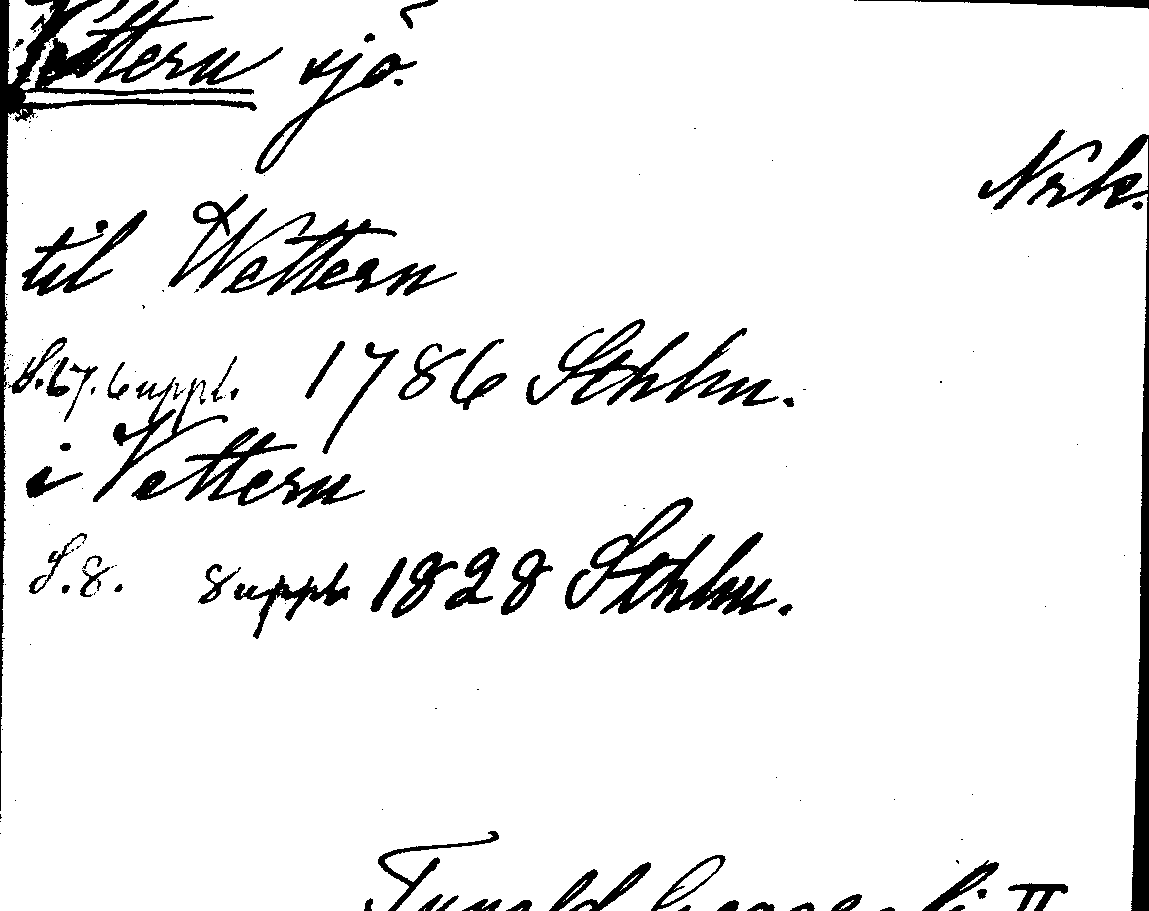 Vettern sjö.
Nrk.
til Wettern
S. 67. 6 uppl. 1786 Sthlm.
i Vettern
S. 8. 8 uppl. 1828 Sthlm.
Tuneld Geografi II